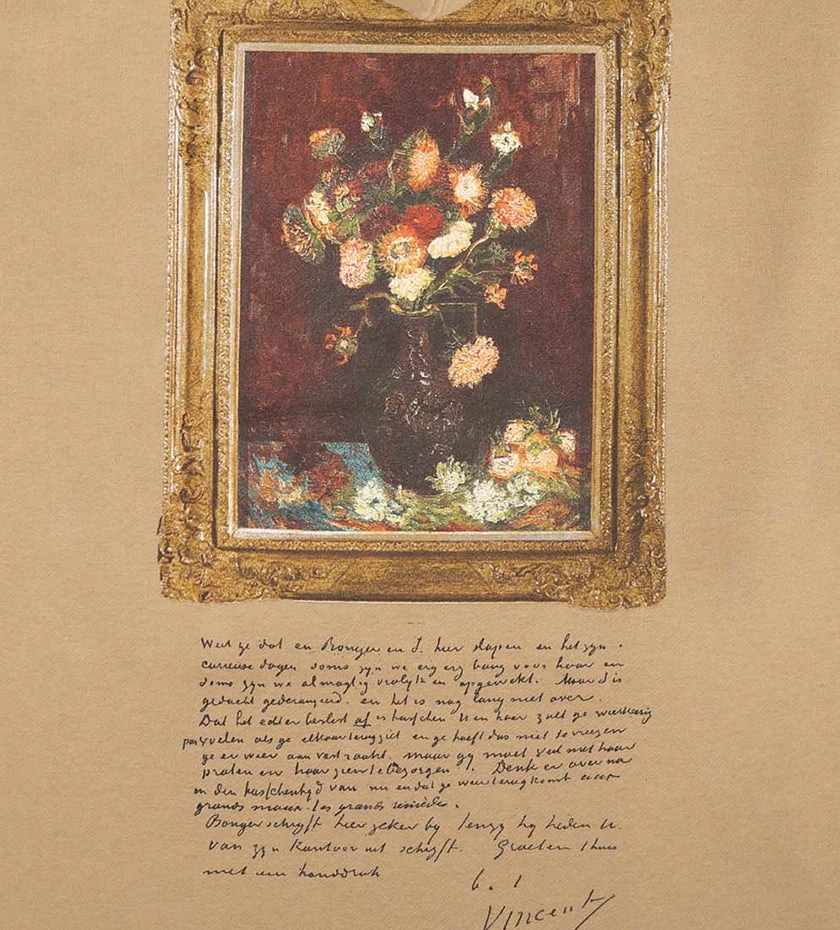 Weet ge dat en Bonger en S. hier slapen en het zyn
curieuse dagen soms zyn we erg erg bang voor haar en
soms zyn we almagtig vrolyk en opgewekt. Maar S is
gedacht gederangeerd. en het is nog lang niet over.
Dat het echter beslist af is tusschen U en haar zult ge wederkeerig
voelen als ge elkaar terugziet en ge hoeft dus niet te vreezen
ge er weer aan vast raakt. maar gy moet veel met haar
praten en haar zien te bezorgen. Denk er over na
in den tusschentyd van nu en dat ge weer terug komt aux
grands maux les grands remèdes.
Bonger schryft hier zeker by tenzy hy heden U
van zyn kantoor uit schryft. Groeten thuis
met een handdruk
Vincent